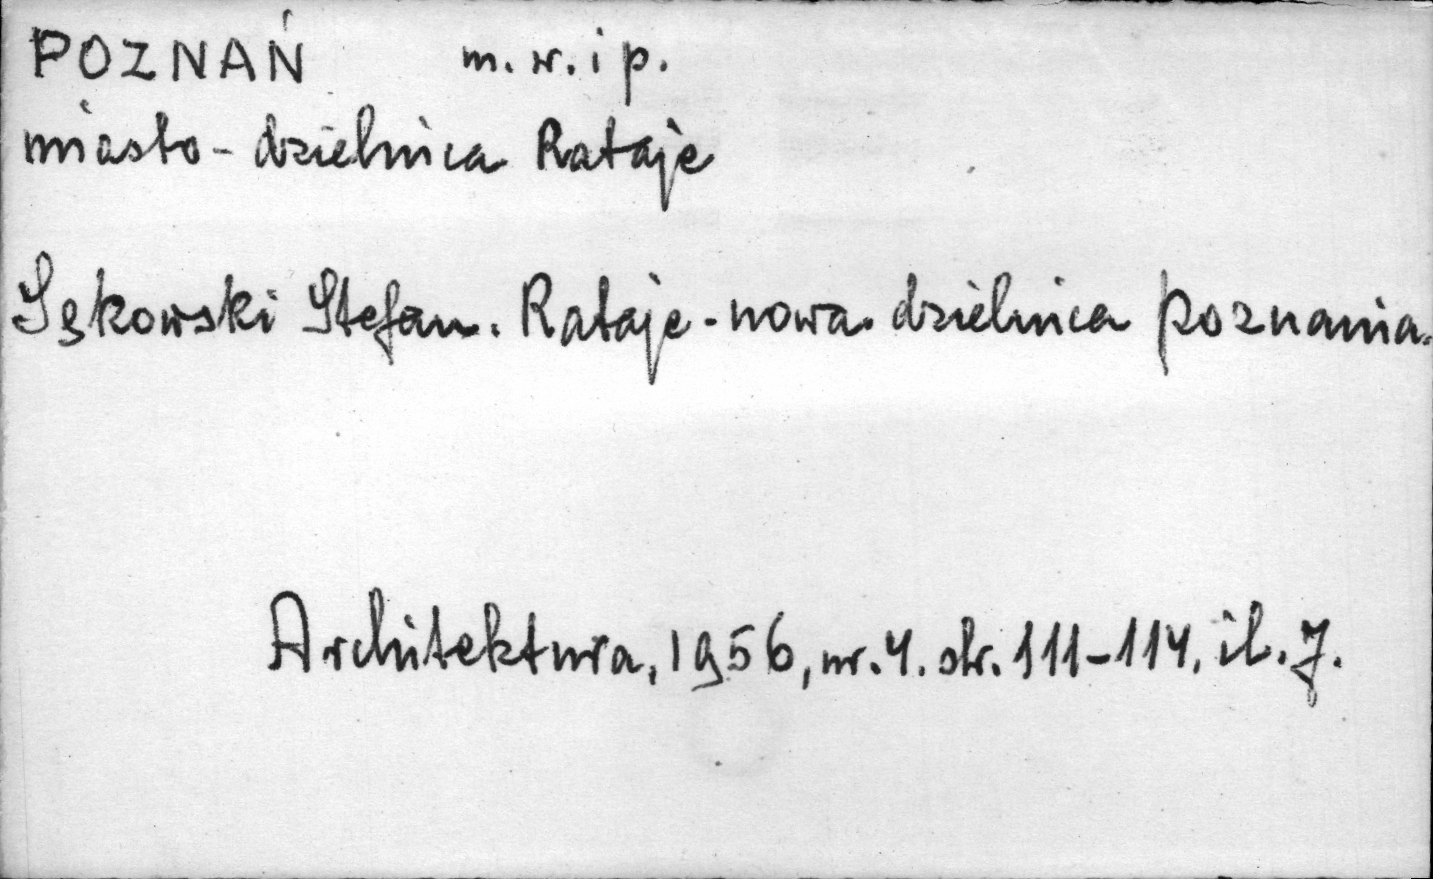 POZNAŃ m. w. i p.
miasto - dzielnica Rataje
Sękowski Stefan. Rataje - nowa dzielnica Poznania.
Architektura, 1956, nr. 4. str. 111-114, il. 7.